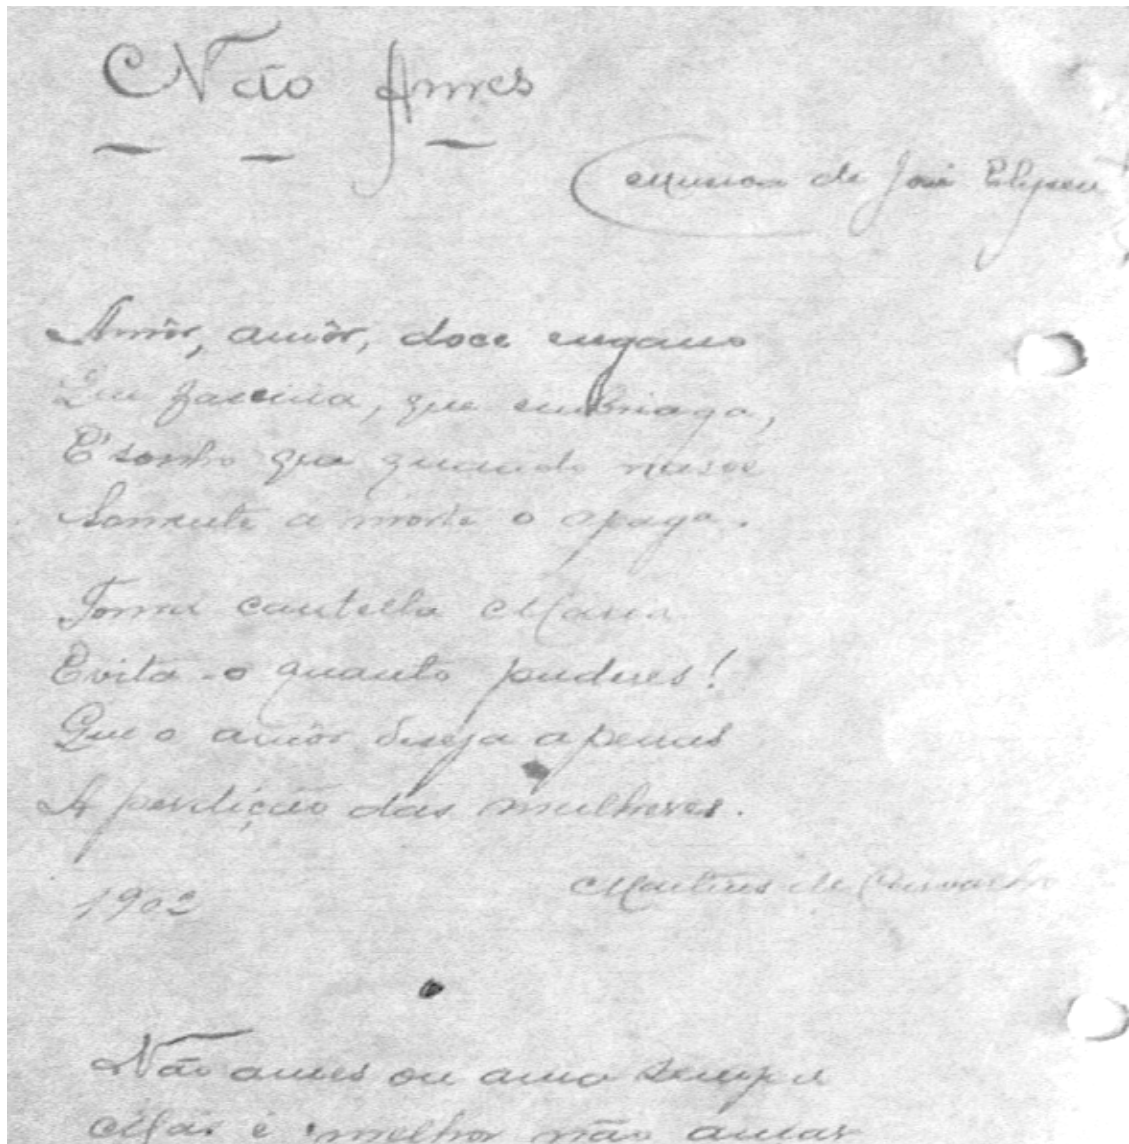 Não Ames
(Musica de José Elyseu
Amôr, amôr, doce engano
Que fascina, que embriaga,
E' sonho que quando nasce
Somente a morte o apaga.
Toma cautella Maria
Evita-o quanto puderes!
Que o amôr deseja apenas
A perdição das mulheres.
1902
Martins de Carvalho
Não ames ou ama sempre
Mas é melhor não amar